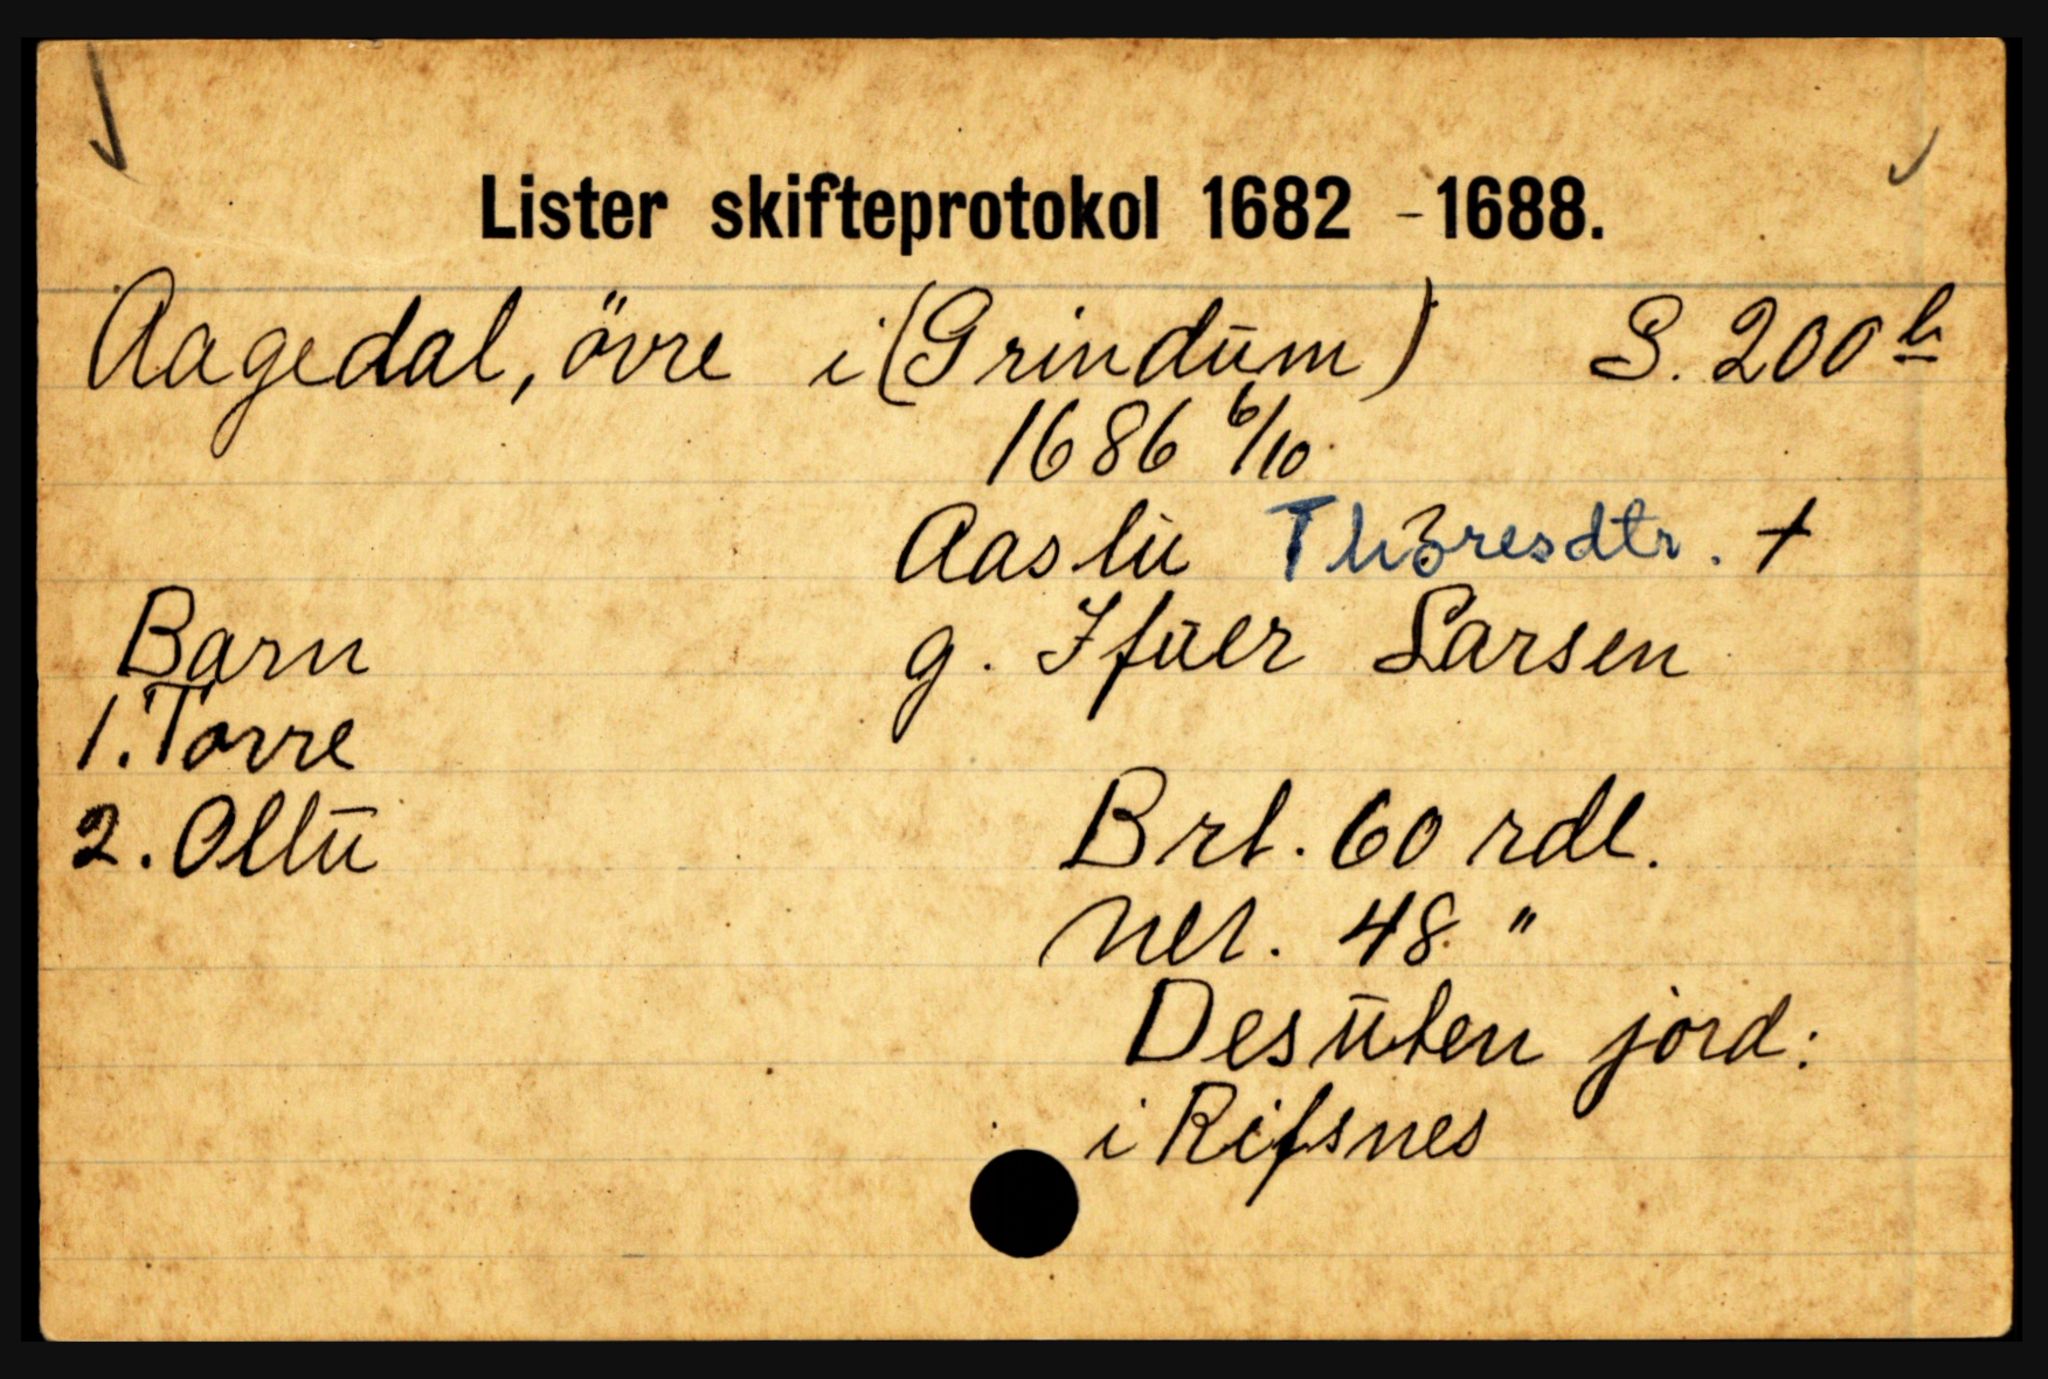 Lister skifteprotokol 1682 -1688.
Aagedal, övre i (Grindum) S. 200 b
1686 6/10
Aaslu Thoresdtr. †
g. Ifuer Larsen
Barn
1. Tovre
2. Ollu
Brt. 60 rdl.
Net. 48 "
Desuten jord:
i Rifsnes